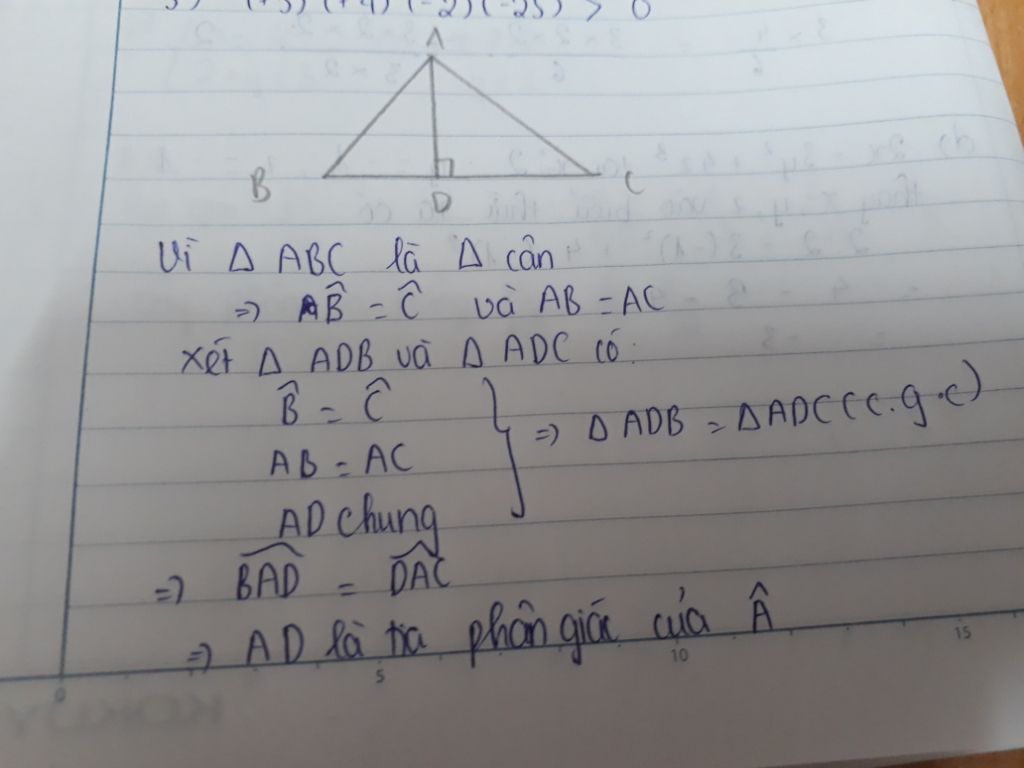 (+3)(+4)(-2)(-25) > 0
A
B
D
C
Vì Δ ABC là Δ cân
=> B̂ = Ĉ và AB = AC
Xét Δ ADB và Δ ADC có:
B̂ = Ĉ
AB = AC
AD chung
=> Δ ADB = Δ ADC (c.g.c)
=> BAD̂ = DAĈ
=> AD là tia phân giác của Â
0 5 10 15